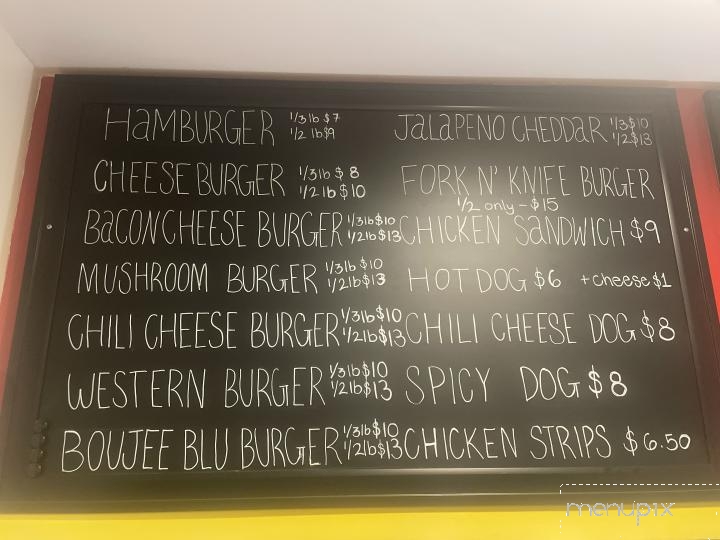 HAMBURGER 1/3 lb $7
1/2 lb $9
CHEESE BURGER 1/3 lb $8
1/2 lb $10
BACON CHEESE BURGER 1/3 lb $10
1/2 lb $13
MUSHROOM BURGER 1/3 lb $10
1/2 lb $13
CHILI CHEESE BURGER 1/3 lb $10
1/2 lb $13
WESTERN BURGER 1/3 lb $10
1/2 lb $13
BOUJEE BLU BURGER 1/3 lb $10
1/2 lb $13
JALAPENO CHEDDAR 1/3 $10
1/2 $13
FORK N' KNIFE BURGER
1/2 only - $15
CHICKEN SANDWICH $9
HOT DOG $6 + cheese $1
CHILI CHEESE DOG $8
SPICY DOG $8
CHICKEN STRIPS $6.50
menupix